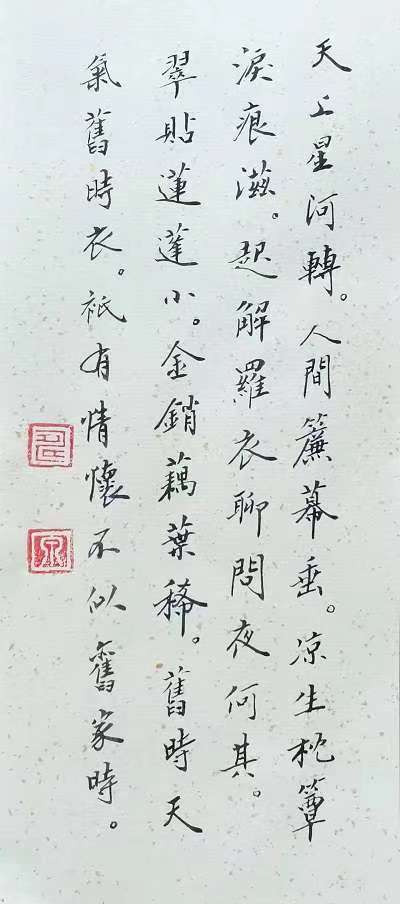 天上星河轉。人間簾幕垂。涼生枕簟
淚痕滋。起解羅衣聊問夜何其。
翠貼蓮蓬小。金銷藕葉稀。舊時天
氣舊時衣。衹有情懷不似舊家時。